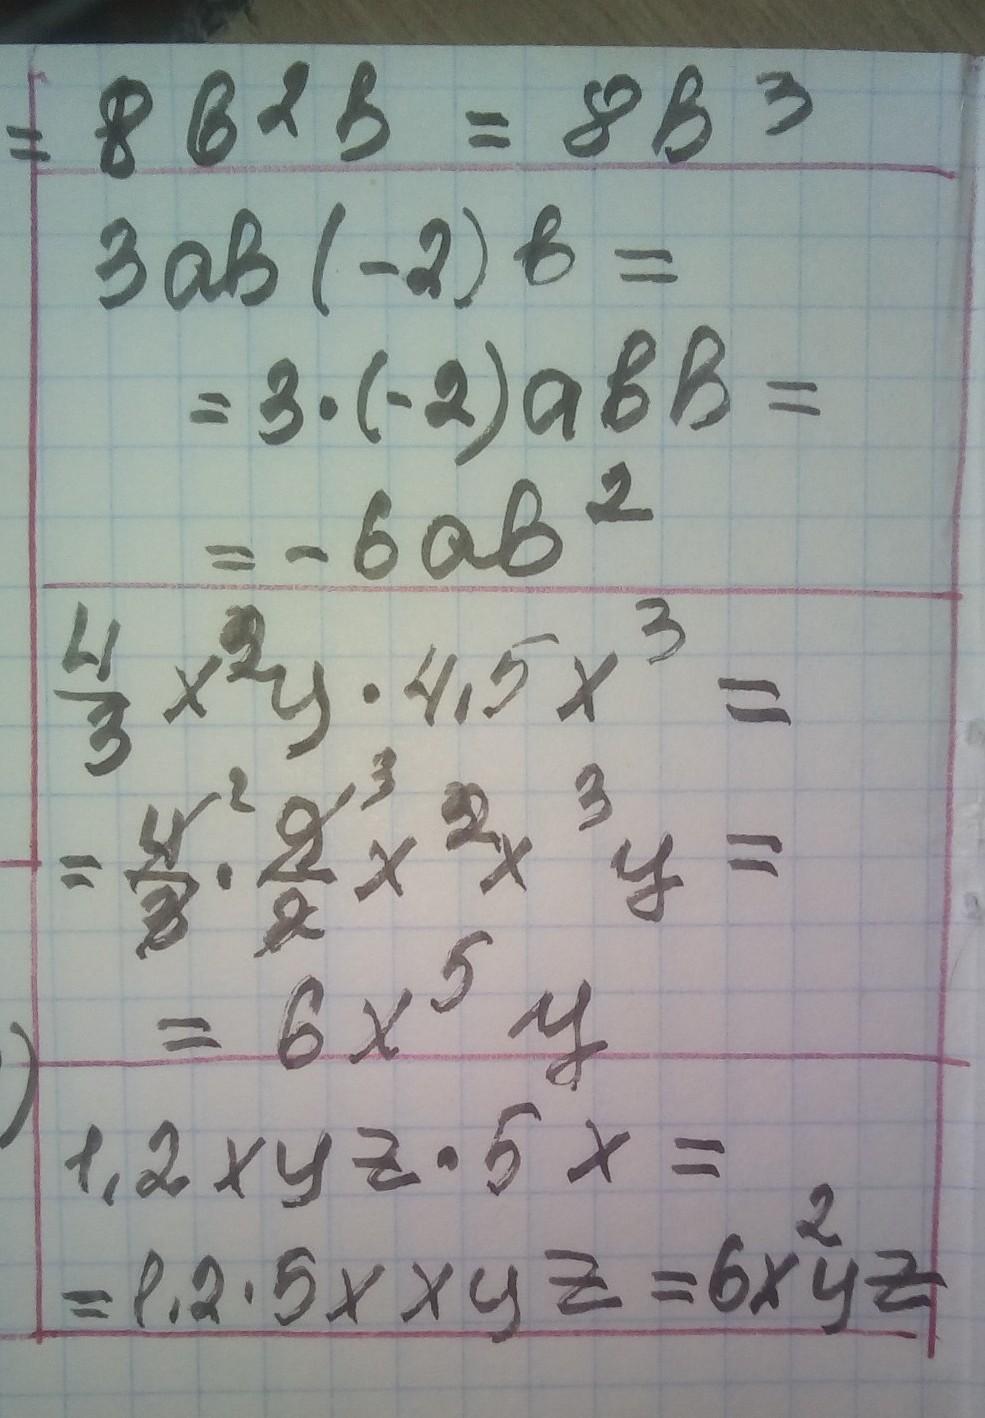 = 8 b² b = 8b³
3ab(-2)b =
= 3·(-2)abb =
= -6ab²
4/3 x²y · 4,5x³ =
= 4²/3 · 9³/2 x²x³y =
= 6x⁵y
)
1,2xyz · 5x =
= 1,2·5xxyz = 6x²yz